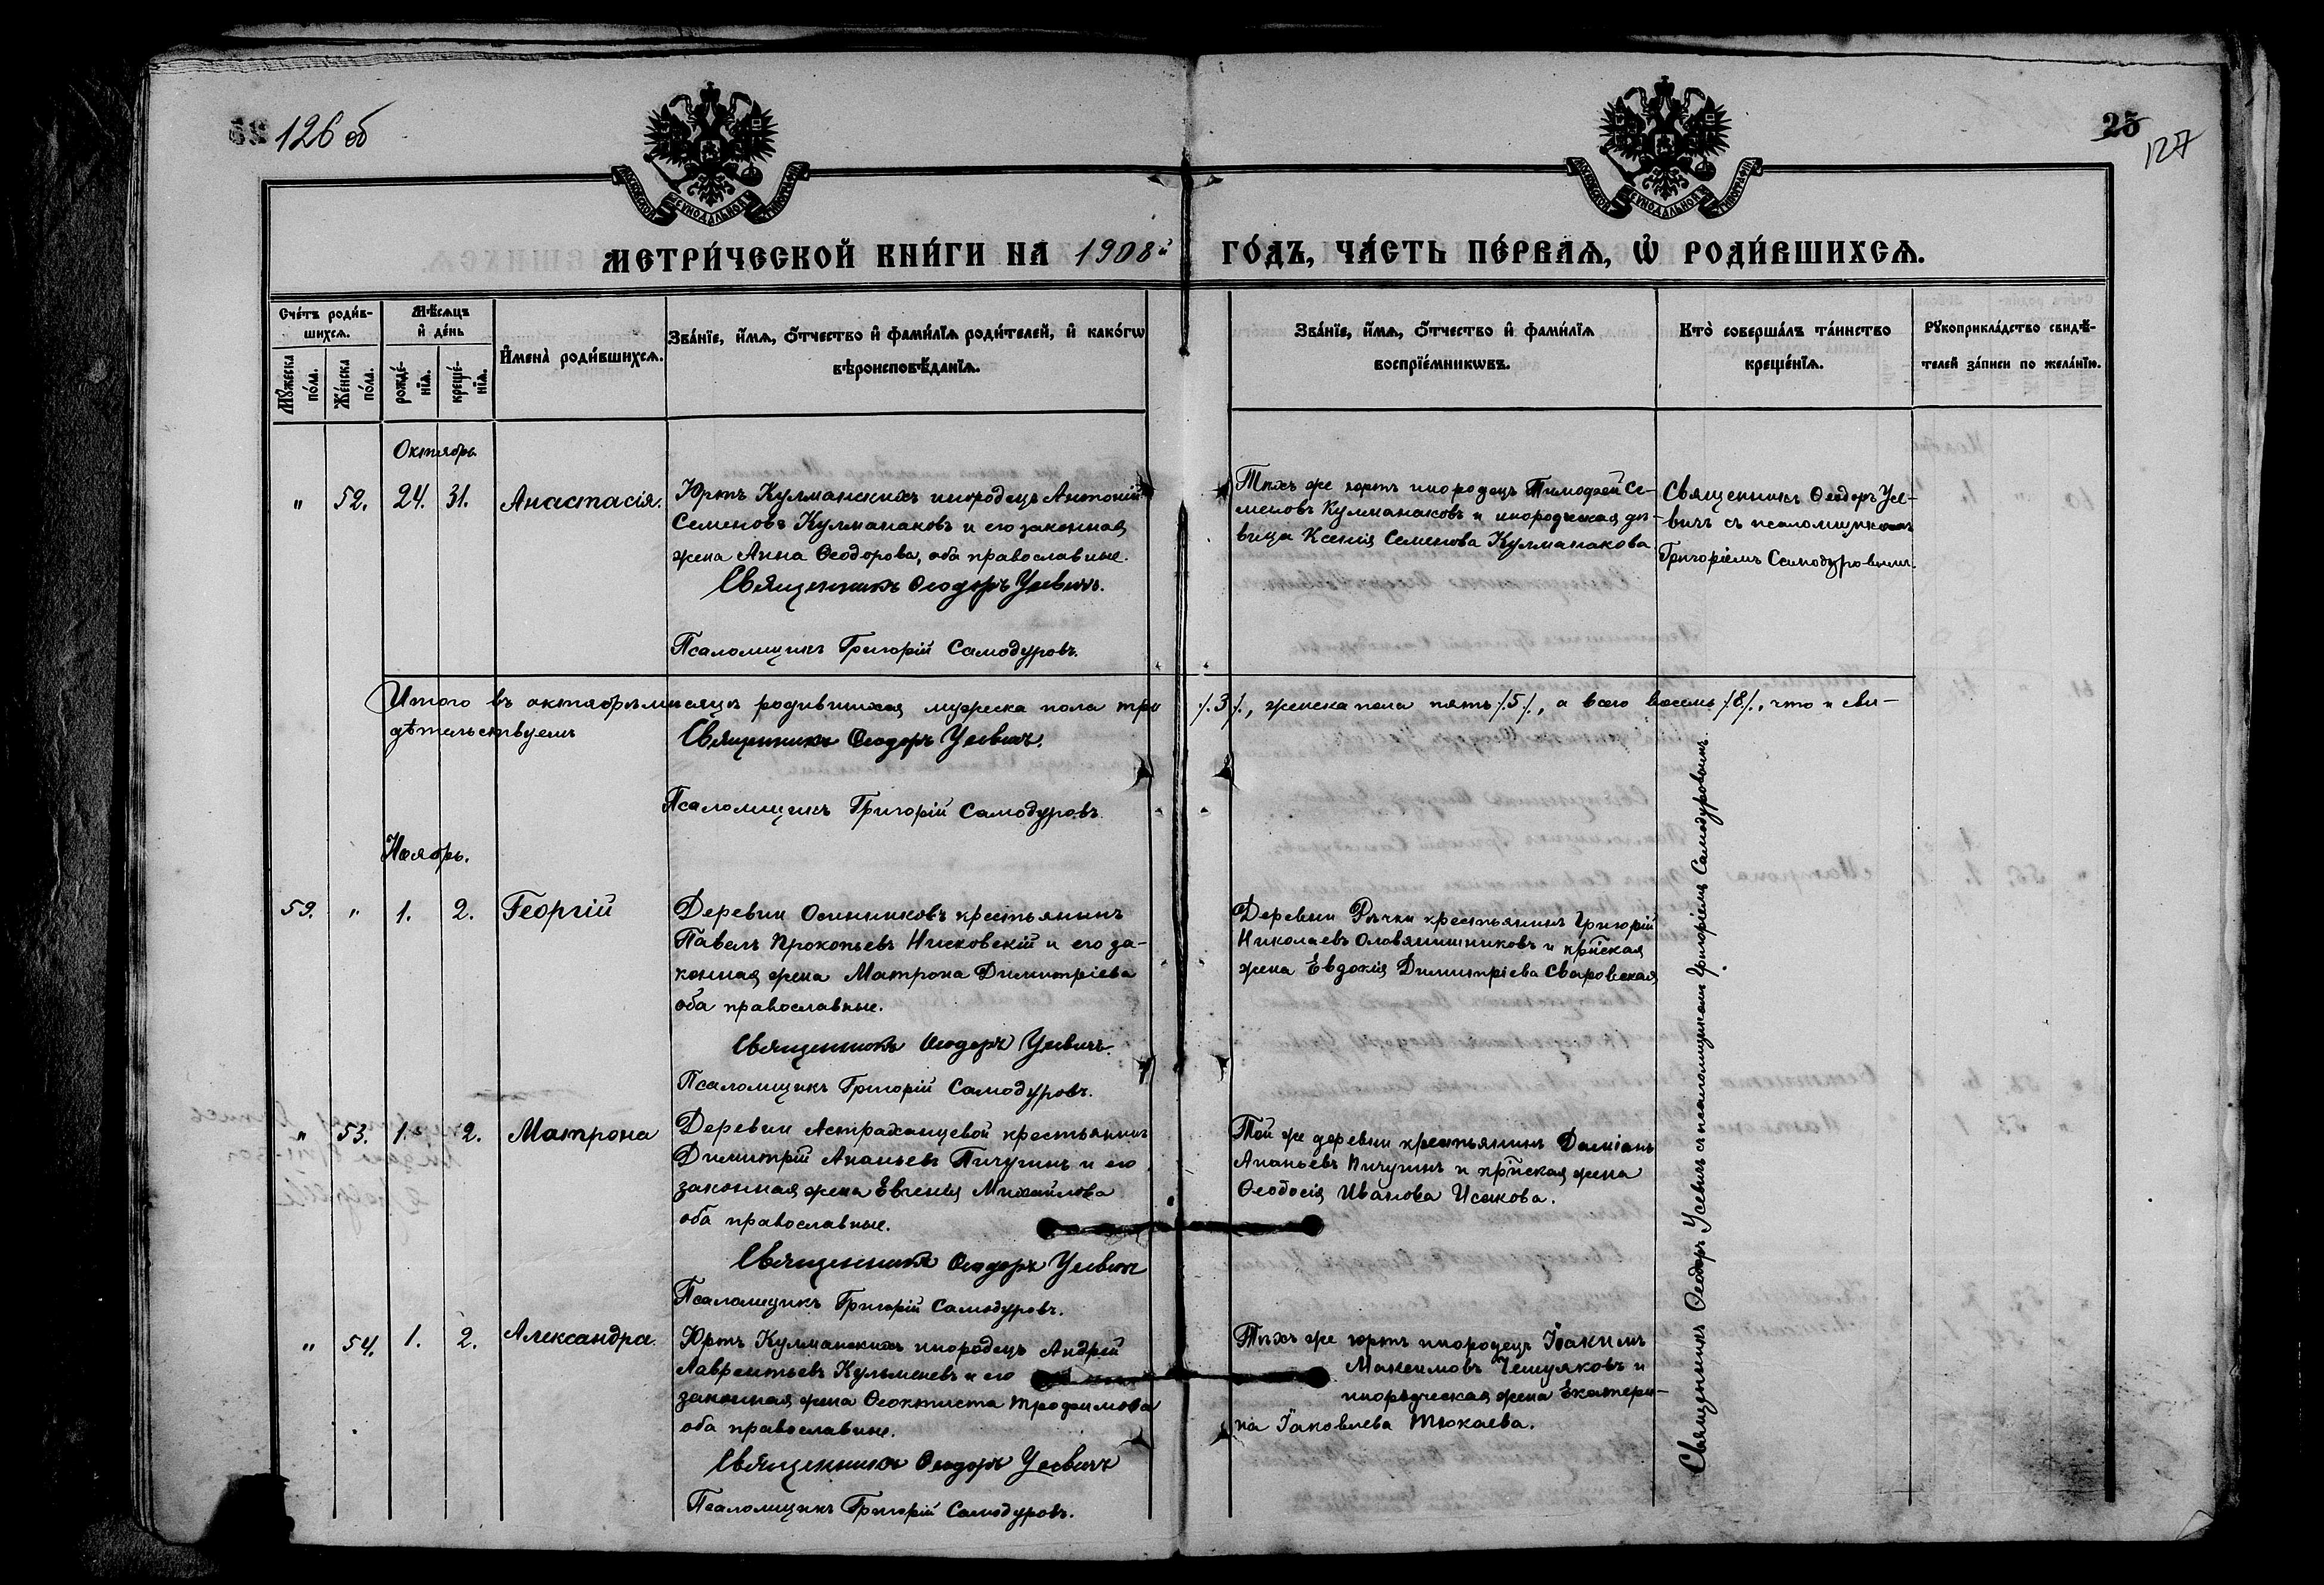 126 об
25
127
МОСКОВСКОЙ СѴНОДАЛЬНОЙ ТИПОГРАФІИ
МОСКОВСКОЙ СѴНОДАЛЬНОЙ ТИПОГРАФІИ
МЕТРИ́ЧЕСКОЙ КНИ́ГИ НА 1908й ГО́ДЪ, ЧА́СТЬ ПЕ́РВАѦ, Ѡ҆ РОДИ́ВШИХСѦ.
Сче́тъ роди́в-
шихсѧ.
Мꙋ́жеска по́ла.
Же́нска по́ла.
Мѣ́сѧцъ
и҆ де́нь
рожде́-
нїѧ.
креще́-
нїѧ.
И҆мена̀ роди́вшихсѧ.
Зва́нїе, и҆́мѧ, ѻ҆́тчество и҆ фами́лїѧ роди́телей, и҆ како́гѡ
вѣроисповѣ́данїѧ.
Зва́нїе, и҆́мѧ, ѻ҆́тчество и҆ фами́лїѧ
воспрїе́мникѡвъ.
Кто̀ соверша́лъ та́инство
креще́нїѧ.
Рꙋкоприкла́дство свидѣ́-
телей за́писи по жела́нїю.
Октябрь
" 52. 24. 31. Анастасія.
Юртъ Кулманскихъ инородецъ Антоній
Семеновъ Кулманаковъ и его законная
жена Анна Ѳеодорова, оба православные.
Священникъ Ѳеодоръ Усевичъ.
Псаломщикъ Григорій Самодуровъ.
Тѣхъ же юртъ инородецъ Тимоѳей Се-
меновъ Кулманаковъ и инородческая дѣ-
вица Ксенія Семенова Кулманакова
Священникъ Ѳеодоръ Усе-
вичъ съ псаломщикомъ
Григоріемъ Самодуровымъ.
Итого въ октябрѣ мѣсяцѣ родившихся мужеска пола три /.3/., женска пола пять /.5/., а всего восемь /.8/., что и сви-
дѣтельствуемъ
Священникъ Ѳеодоръ Усевичъ.
Псаломщикъ Григорій Самодуровъ.
Ноябрь.
59. " 1. 2. Георгій
Деревни Осинниковъ крестьянинъ
Павелъ Прокопьевъ Нисковскій и его за-
конная жена Матрона Димитріева
оба православные.
Священникъ Ѳеодоръ Усевичъ.
Псаломщикъ Григорій Самодуровъ.
Деревни Рѣчки крестьянинъ Григорій
Николаевъ Оловянишниковъ и крн̃ская
жена Евдокія Димитріева Сваровская
" 53. 1. 2. Матрона
Деревни Астраханцевой крестьянинъ
Димитрій Ананьевъ Пичугинъ и его
законная жена Евгенія Михайлова
оба православные.
Священникъ Ѳеодоръ Усевичъ
Псаломщикъ Григорій Самодуровъ.
Той же деревни крестьянинъ Даміанъ
Ананьевъ Пичугинъ и крн̃ская жена
Ѳеодосія Иванова Исакова.
" 54. 1. 2. Александра.
Юртъ Кулманскихъ инородецъ Андрей
Лаврентьевъ Кульменевъ и его
законная жена Ѳеоктиста Трофимова
оба православные.
Священникъ Ѳеодоръ Усевичъ
Псаломщикъ Григорій Самодуровъ.
Тѣхъ же юртъ инородецъ Іоакимъ
Максимовъ Чешуяковъ и
инородческая жена Екатери-
на Іаковлева Тюкаева.
Священникъ Ѳеодоръ Усевичъ съ псаломщикомъ Григоріемъ Самодуровымъ.